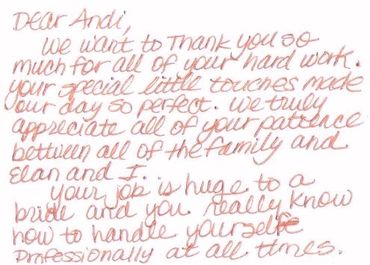 Dear Andi,
We want to Thank you so
much for all of your hard work.
your special little touches made
our day so perfect. We truly
appreciate all of your patience
between all of the family and
Elan and I.
Your job is huge to a
bride and you really know
how to handle yourself
professionally at all times.